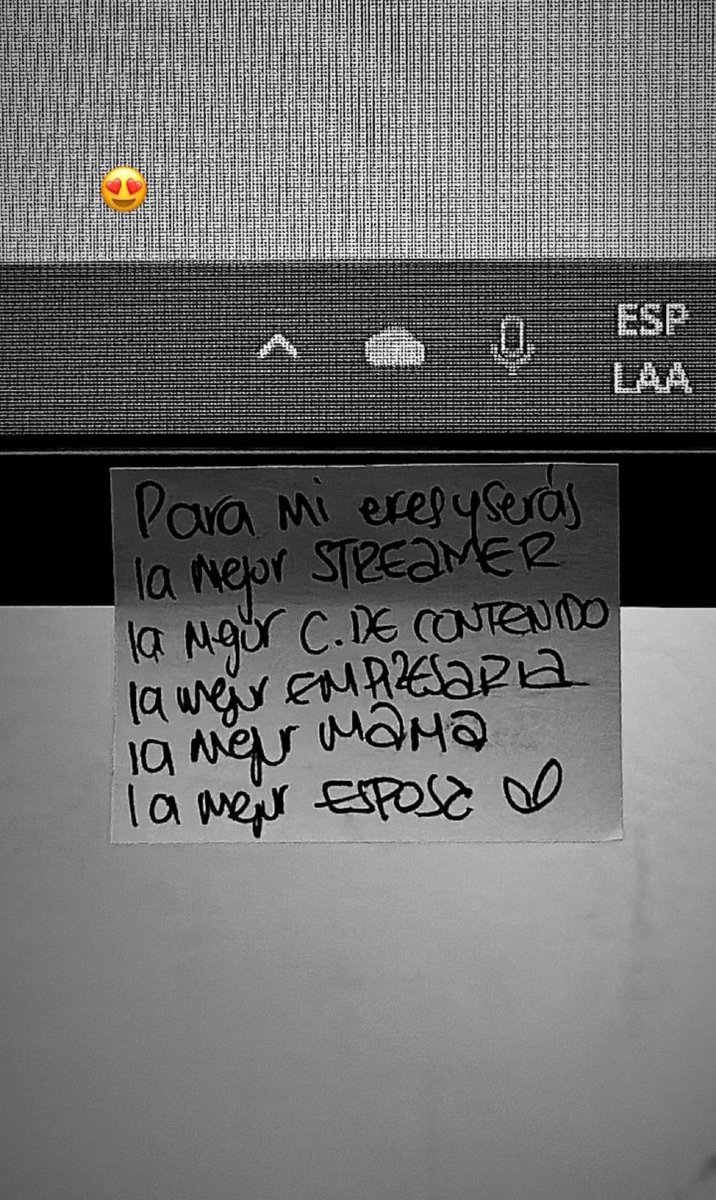 😍
ESP
LAA
Para mi eres y serás
la mejor STREAMER
la mejor C. DE CONTENIDO
la mejor EMPRESARIA
la mejor MAMA
la mejor ESPOSA ♡